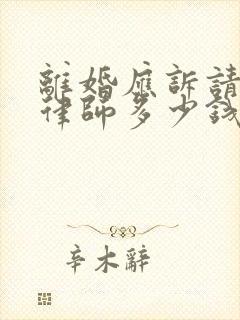 離婚應訴請
律師多少錢
辛木辭